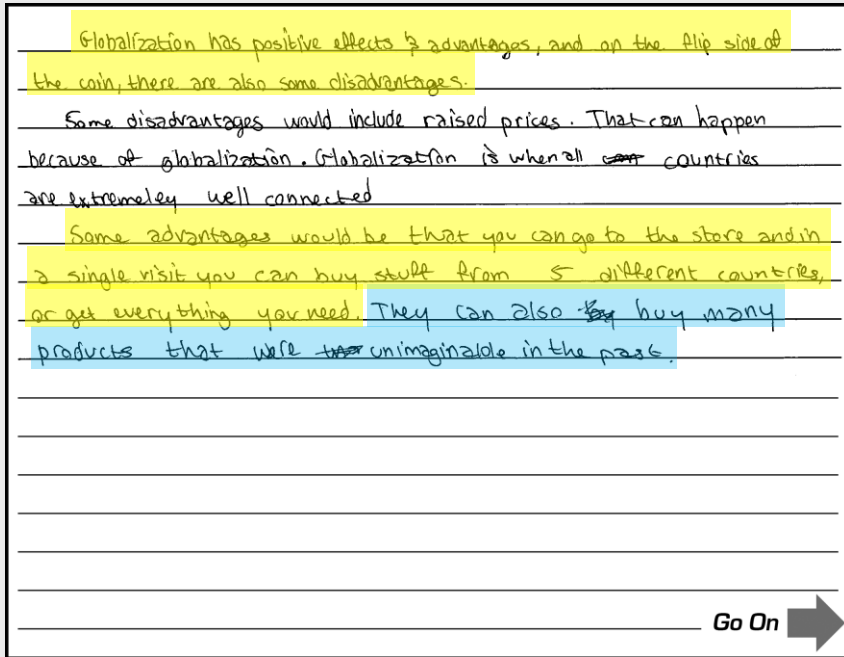 Globalization has positive effects & advantages, and on the flip side of
the coin, there are also some disadvantages.
Some disadvantages would include raised prices. That can happen
because of globalization. Globalization is when all countries
are extremeley well connected
Some advantages would be that you can go to the store and in
a single visit you can buy stuff from 5 different countries,
or get everything you need. They can also buy many
products that were unimaginable in the past.
Go On